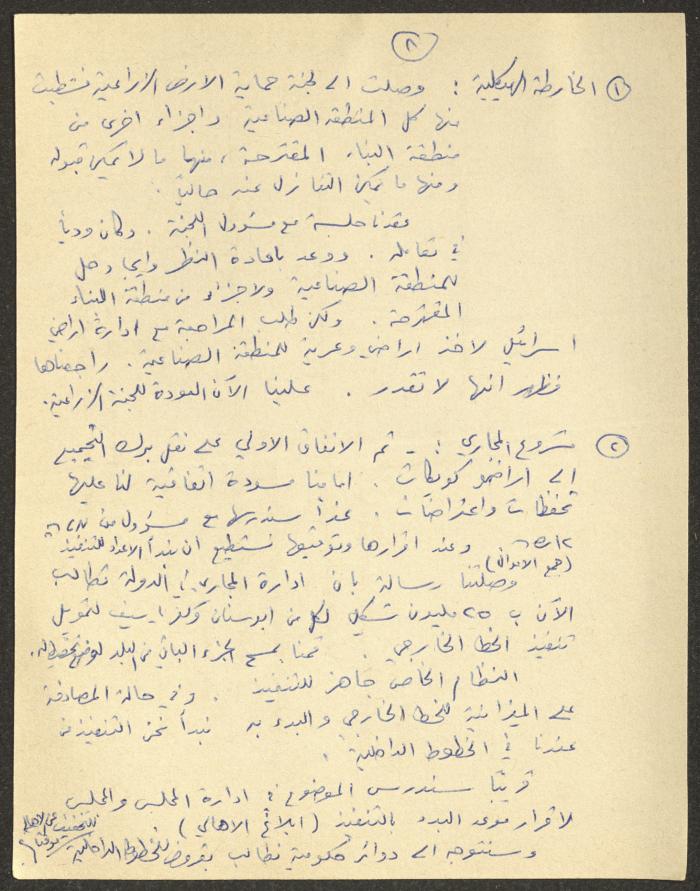 ٨
① الخارطة الهيكلية : وصلت الى لجنة حماية الارض الزراعية فشطبت
منها كل المنطقة الصناعية واجزاء اخرى من
منطقة البناء المقترحة ، منها ما لا يمكن قبوله
ومنها ما يمكن التنازل عنه حالياً .
عقدنا جلسة مع مسؤول اللجنة . وكان ودياً
في تعامله . ووعد باعادة النظر وايجاد حل
للمنطقة الصناعية ولاجزاء من منطقة البناء
المقترحة . ولكن طلب المراجعة مع ادارة اراضي
اسرائيل لاخذ اراضي وعرية للمنطقة الصناعية . راجعناها
فظهر انها لا تقدر . علينا الآن العودة للجنة الزراعية .
② مشروع المجاري : - تم الاتفاق الاولي على نقل برك التجميع
الى اراضي كويكات . امامنا مسودة اتفاقية لنا عليها
تحفظات واعتراضات . غداً سندرسها مع مسؤول من
وعند اقرارها وتوقيعها نستطيع ان نبدأ الاعداد للتنفيذ
(جمع الاموال)
وصلتنا رسالة بان ادارة المجاري في الدولة تطالب
الآن ب ٢٥ مليون شيكل لكل من ابوسنان وكفر ياسيف لتمويل
تنفيذ الخط الخارجي . قمنا بمسح الجزء الباقي من البلد لوضع تخطيط له .
النظام الخاص جاهز للتنفيذ . وفي حالة المصادقة
على الميزانية للخط الخارجي والبدء به نبدأ نحن التنفيذ من
عندنا في الخطوط الداخلية .
قريباً سندرس الموضوع في ادارة المجلس والمجلس
لاقرار موعد البدء بالتنفيذ (ابلاغ الاهالي)
وسنتوجه الى دوائر حكومية نطالب بقروض للخطوط الداخلية
للتخفيف عن الاهالي